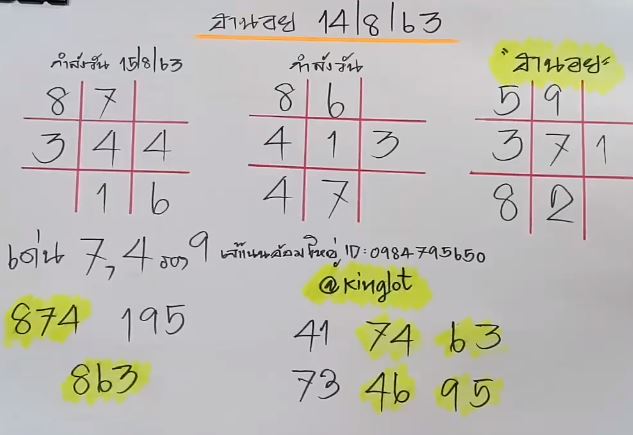 ฮานอย 14/8/63
กำลังวัน 15/8/63
8 7
3 4 4
1 6
กำลังวัน
8 6
4 1 3
4 7
"ฮานอย"
5 9
3 7 1
8 2
เด่น 7,4 รอง 9 ID: 0984795650
@kinglot
874 195
863
41 74 63
73 46 95